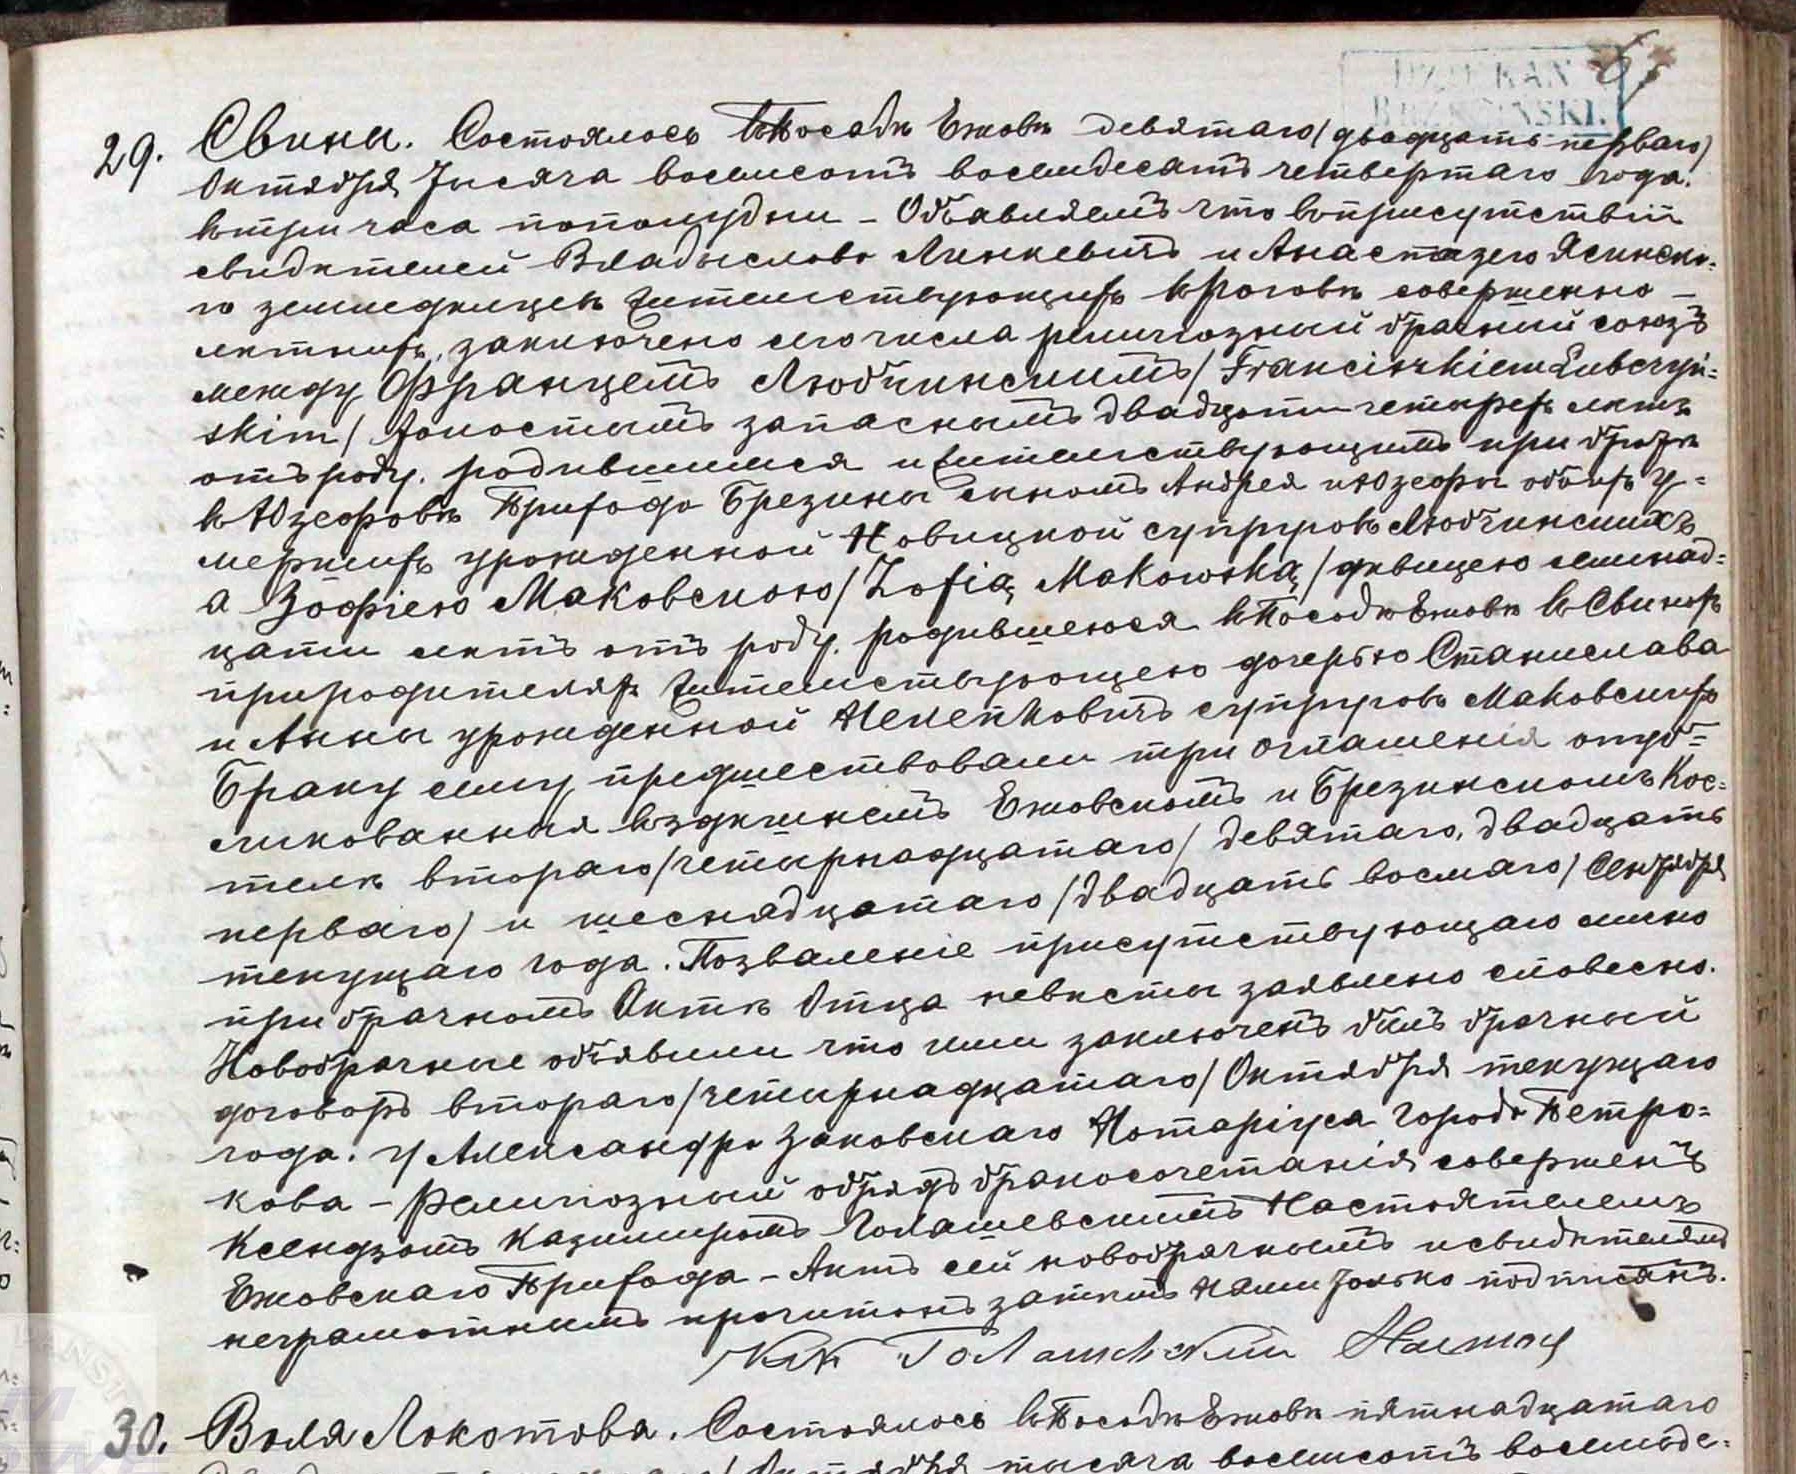 DZIEKAN
BRZEZIŃSKI.
29. Свины. Состоялось въ Посадѣ Ежовѣ девятаго/двадцать перваго/
Октября Тысяча восемьсотъ восемдесатъ четвертаго года.
въ три часа пополудни – Объявляемъ что въ присутствіи
свидѣтелей Владыслова Линкевичъ и Анастазего Ясинско-
го земледѣлцевъ жительствующихъ въ Роговѣ совершенно –
лѣтнихъ, заключено сего числа религіозный брачный союзъ
между Францемъ Любчинскимъ/Franciszkiem Lubczyń=
skim/ холостымъ запаснымъ двадцати четырехъ лѣтъ
отъ роду. родившимся и жительствующимъ при братѣ
въ Юзефовѣ Прихода Брезины сыномъ Андрея и Юзефы обоихъ у-
мершихъ урожденной Новицкой супруговъ Любчинскихъ
а Зофіею Маковскою/Zofią Makowską/дѣвицею семнад=
цати лѣтъ отъ роду. родившеюся въ Посадѣ Ежовѣ въ Свинахъ
при родителяхъ жительствующею дочерью Станислава
и Анны урожденной супруговъ Маковскихъ
Браку сему предшествовали три оглашенія опуб=
ликованныя въ здѣшнемъ Ежовскомъ и Брезинскомъ Кос=
телѣ втораго/четырнадцатаго/девятаго, двадцать
перваго/ и шеснядцатаго/двадцать восмаго/Сентября
текущаго года. Позваленіе присутствующаго лично
при брачномъ Актѣ Отца невѣсты заявлено словесно.
Новобрачные объявили что ими заключенъ былъ брачный
договоръ втораго/четырнадцатаго/Октября текущаго
года. у Александра Заковскаго Нотаріуса города Петро=
кова – Религіозный обрядъ бракосочетанія совершенъ
Ксендзомъ Казимиромъ Голашевскимъ Настоятелемъ
Ежовскаго Прихода – Актъ сей новобрачнымъ и свидѣтелямъ
неграмотнымъ прочитанъ затѣмъ Нами только подписанъ.
Голашевскій
30. Воля Локотова. Состоялось въ Посадѣ Ежовѣ пятнадцатаго
Октября тысяча восемьсотъ восемьде-